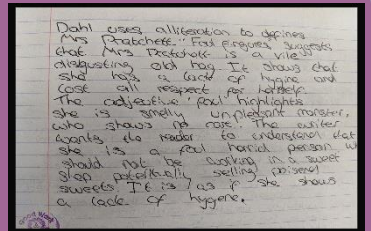 Dahl uses alliteration to defines
Mrs Pratchett "Foul Fingures" suggests
that Mrs Pratchett is a vile
disgusting old hag. It shows that
she has a lack of hygine and
lost all respect for herself.
The adjective 'foul' highlights
she is smelly unpleasant monster,
who shows no care. The writer
wants the reader to understand that
she is a foul horrid person w
should not be working in a sweet
shop potentially selling poisened
sweets. It is as if she shows
a lack of hygene.
Good Work